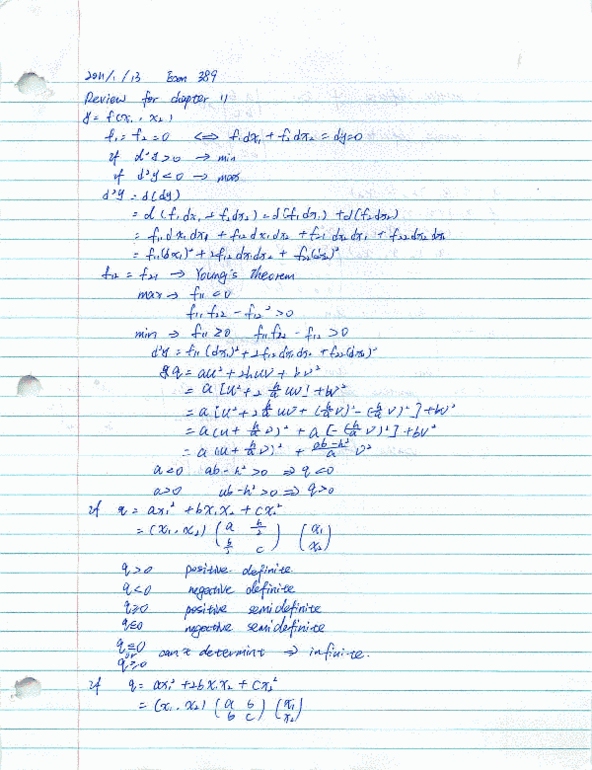 2011/1/13 Econ 389
Review for chapter 11
y = f(x₁, x₂)
f₁ = f₂ = 0 <=> f₁dx₁ + f₂dx₂ = dy = 0
if d²y > 0 → min
if d²y < 0 → max
d²y = d(dy)
= d(f₁dx₁ + f₂dx₂) = d(f₁dx₁) + d(f₂dx₂)
= f₁₁dx₁dx₁ + f₁₂dx₁dx₂ + f₂₁dx₂dx₁ + f₂₂dx₂dx₂
= f₁₁(dx₁)² + 2f₁₂dx₁dx₂ + f₂₂(dx₂)²
f₁₂ = f₂₁ → Young's Theorem
max → f₁₁ < 0
f₁₁f₂₂ - f₁₂² > 0
min → f₁₁ ≥ 0 f₁₁f₂₂ - f₁₂ > 0
d²y = f₁₁(dx₁)² + 2f₁₂dx₁dx₂ + f₂₂(dx₂)²
q = au² + 2huv + bv²
= a[u² + 2 h/a uv] + bv²
= a[u² + 2 h/a uv + (h/a v)² - (h/a v)²] + bv²
= a(u + h/a v)² + a[-(h/a v)²] + bv²
= a(u + h/a v)² + (ab-h²)/a v²
a<0 ab-h²>0 ⇒ q<0
a>0 ab-h²>0 ⇒ q>0
if q = ax₁² + bx₁x₂ + cx₂²
= (x₁, x₂) (a b/2; b/2 c) (x₁; x₂)
q>0 positive definite
q<0 negative definite
q≥0 positive semidefinite
q≤0 negative semidefinite
q≤0
or can't determint → infinite.
q≥0
if q = ax₁² + 2bx₁x₂ + cx₂²
= (x₁, x₂) (a b; b c) (x₁; x₂)